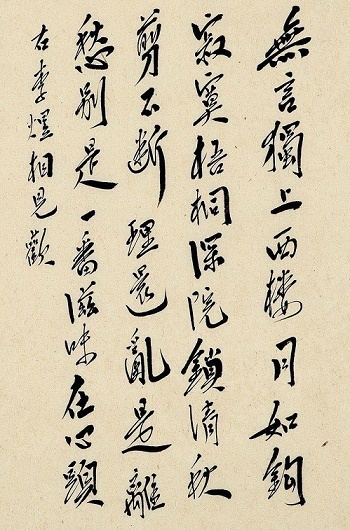 無言獨上西樓月如鉤
寂寞梧桐深院鎖清秋
剪不断理還亂是離
愁别是一番滋味在心頭
右李煜相見歡